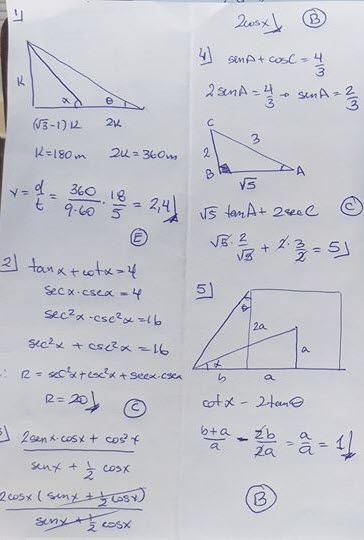 1)
K
x
θ
(√3-1)K
2K
K=180m 2K=360m
v = d/t = 360/9·60 · 18/5 = 2,4
E
2) tanx + cotx = 4
secx·cscx = 4
sec²x·csc²x = 16
sec²x + csc²x = 16
R = sec²x + csc²x + secx·cscx
R = 20
C
2senx·cosx + cos²x
senx + 1/2 cosx
2cosx (senx + 1/2 cosx)
senx + 1/2 cosx
2cosx
B
4) senA + cosC = 4/3
2senA = 4/3 → senA = 2/3
C
3
2
B
A
√5
√5 tanA + 2secC
C
√5·2/√5 + 2·3/2 = 5
5)
θ
2a
a
x
b
a
cotx - 2tanθ
b+a/a - 2b/2a = a/a = 1
B